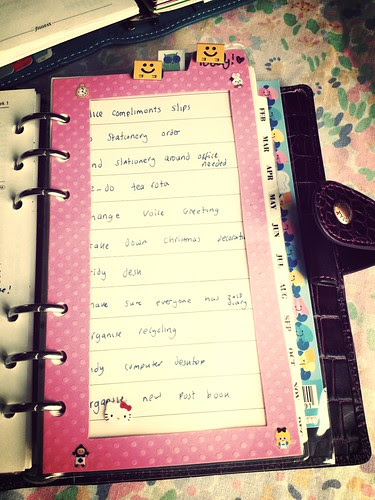 compliments slips
Stationery order
nd stationery around office
needed
e-do tea rota
hange Voice Greeting
ake Down Christmas decorati
idy desk
sure everyone has 2013
diary
rganise recycling
dy computer desktop
rganise new Post book
FEB
MAR
APR
MAY
JUN
JUL
AUG
SEP
OCT
NOV